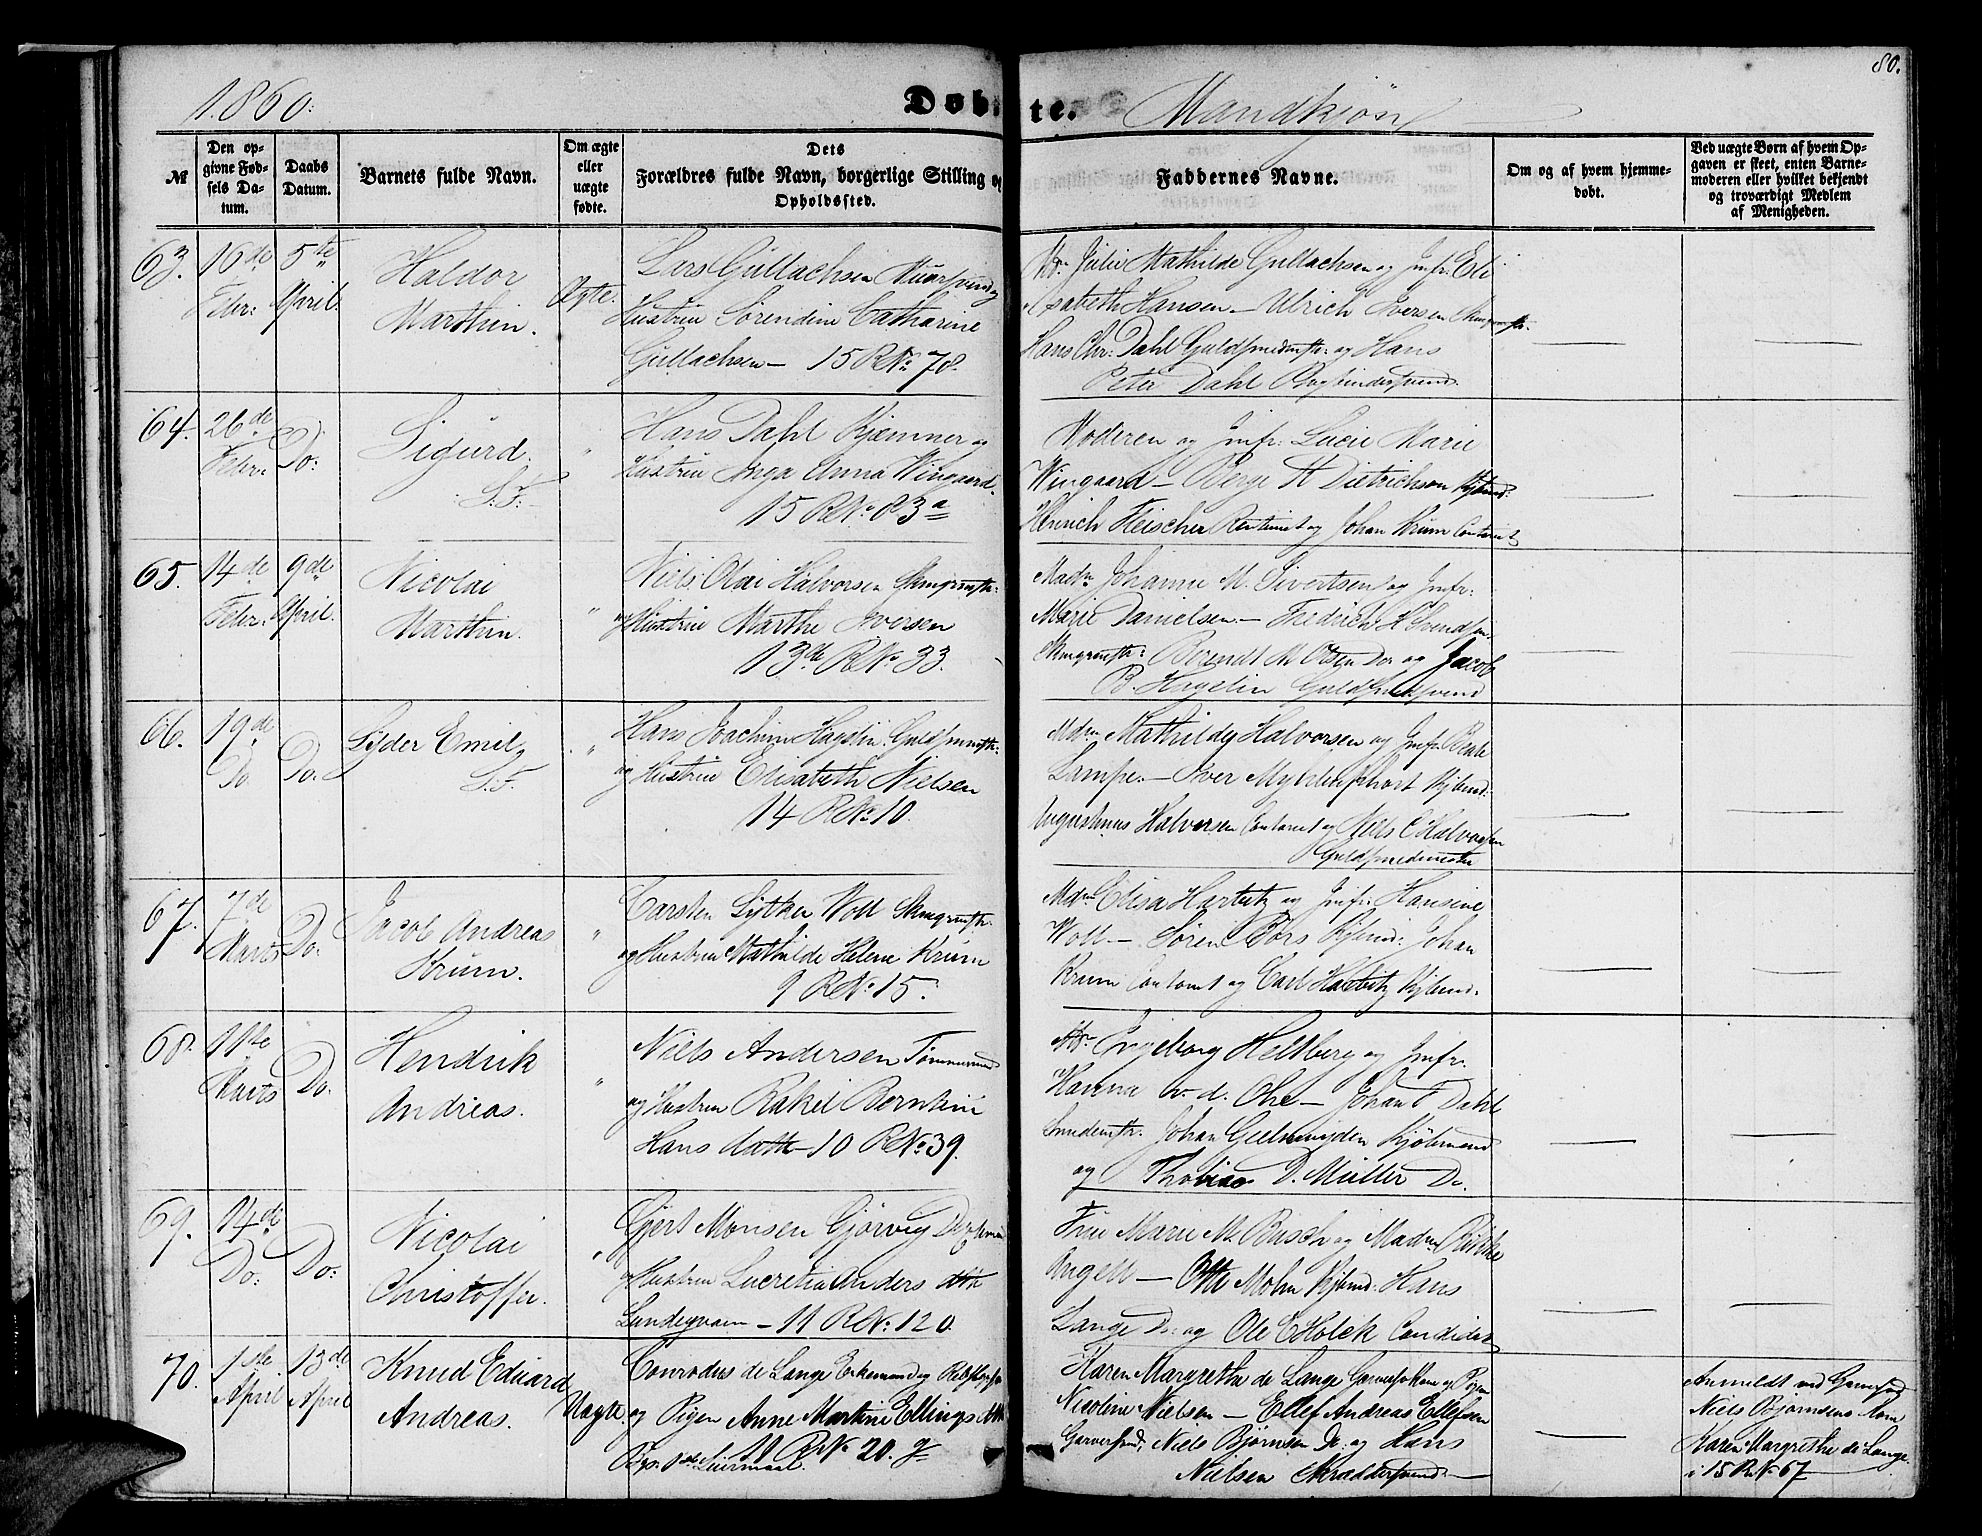 80.
1860.
Døbte.
Mandkjøn
№
Den op-
givne Fød-
sels Da-
tum.
Daabs
Datum.
Barnets fulde Navn.
Om ægte
eller
uægte
fødte.
Dets
Forældres fulde Navn, borgerlige Stilling og
Opholdssted.
Faddernes Navne.
Om og af hvem hjemme-
døbt.
Ved uægte Børn af hvem Op-
gaven er skeet, enten Barne-
moderen eller hvilket bekjendt
og troværdigt Medlem
af Menigheden.
63.
16de
Febr:
5te
April.
Haldor
Marthin.
Ægte.
Lars Gullachsen Muursvend og
Hustrue Sørendine Catharine
Gullachsen – 15 R № 78.
Julie Mathilde Gullachsen og Jmfr. Eli
sabeth Hansen – Ulrich Iversen Skmgrmstr.
Hans Chr. Dahl Guldsmedmstr. og Hans
Peter Dahl Bogbindersvend.
64.
26de
Febr.
Do:
Sigurd.
S.F.
"
Hans Dahl Kjæmner og
Hustrue Inga Anna Wingaard.
15 R № 83a
Moderen og Jmfr. Lucie Marie
Wingaard – Berge H Dietrichson Kjbmd:
Henrich Fleischer Rentenist og Johan Krum Contorist
65.
14de
Febr.
9de
April.
Nicolai
Marthin.
"
Niels Olai Halvorsen Skmgrmstr:
og Hustrue Marthe Iversen
13de R № 33.
Madm Johanne M. Sivertsen og Jmfr:
Marie Danielsen – Fredrich
Skmgrmstr: Berendt M Olsen Do og Jacob
B. Hagelin Guldsmedsvend
66.
19de
Do
Do.
Lyder Emil
S.F.
"
Hans Joachim Hagelin Guldsmmstr:
og Hustrue Elisabeth Nielsen
14 R № 10.
Mdm Mathilde Halvorsen og Jmfr Beate
Lampe. – Iver Kjbmd:
Augustinus Halvorsen Contorist og Niels C Halvorsen
Guldsmedmester
67.
7de
Marts
Do.
Jacob Andreas
Krum.
"
Carsten Lytker Woll Skmgrmstr.
og Hustrue Mathilde Helene Krum
9 R № 15.
Mdm Elisa Hartvig og Jmfr. Hansine
Woll – Søren Bors Kjbmd: Johan
Krum Contorist og Carl Kjbmd.
68.
11te
Marts
Do.
Hendrik
Andreas.
"
Niels Andersen Tømmermd
og Hustrue Rakel Berntine
Hans datter 10 R № 39.
Ingeborg Heltberg og Jmfr.
Hanna v. d. Ohe – Johan F Dahl
Smedemstr. Johan Gelmuyden Kjøbmand
og Thobias D. Müller Do.
69.
14de
Do:
Do:
Nicolai
Christoffer.
"
Gjert Monsen Gjørvig
og Hustrue Lucretia Anders dttr
– 11 R № 120.
Frue Marie M. Busch og Madm Rikke
Angell – Otto Mohn Kjbmd: Hans
Lange Do. og Ole E Holck Candidat
70.
1ste
April
13de
April
Knud Eduard
Andreas.
Uægte.
Conradus de Lange Enkemand og
og Pigen Anne Martine Ellings dttr
11 R № 20. g
Karen Margrethe de Lange og Pigen
Nicoline Nielsen – Ellef Andreas Ellefsen
Garversvd, Niels Bjørnsen Do. og Hans
Nielsen Skræddersvend –
Anmeldt ved
Niels Bjørnsens Kone
Karen Margrethe de Lange
i 15 R № 67